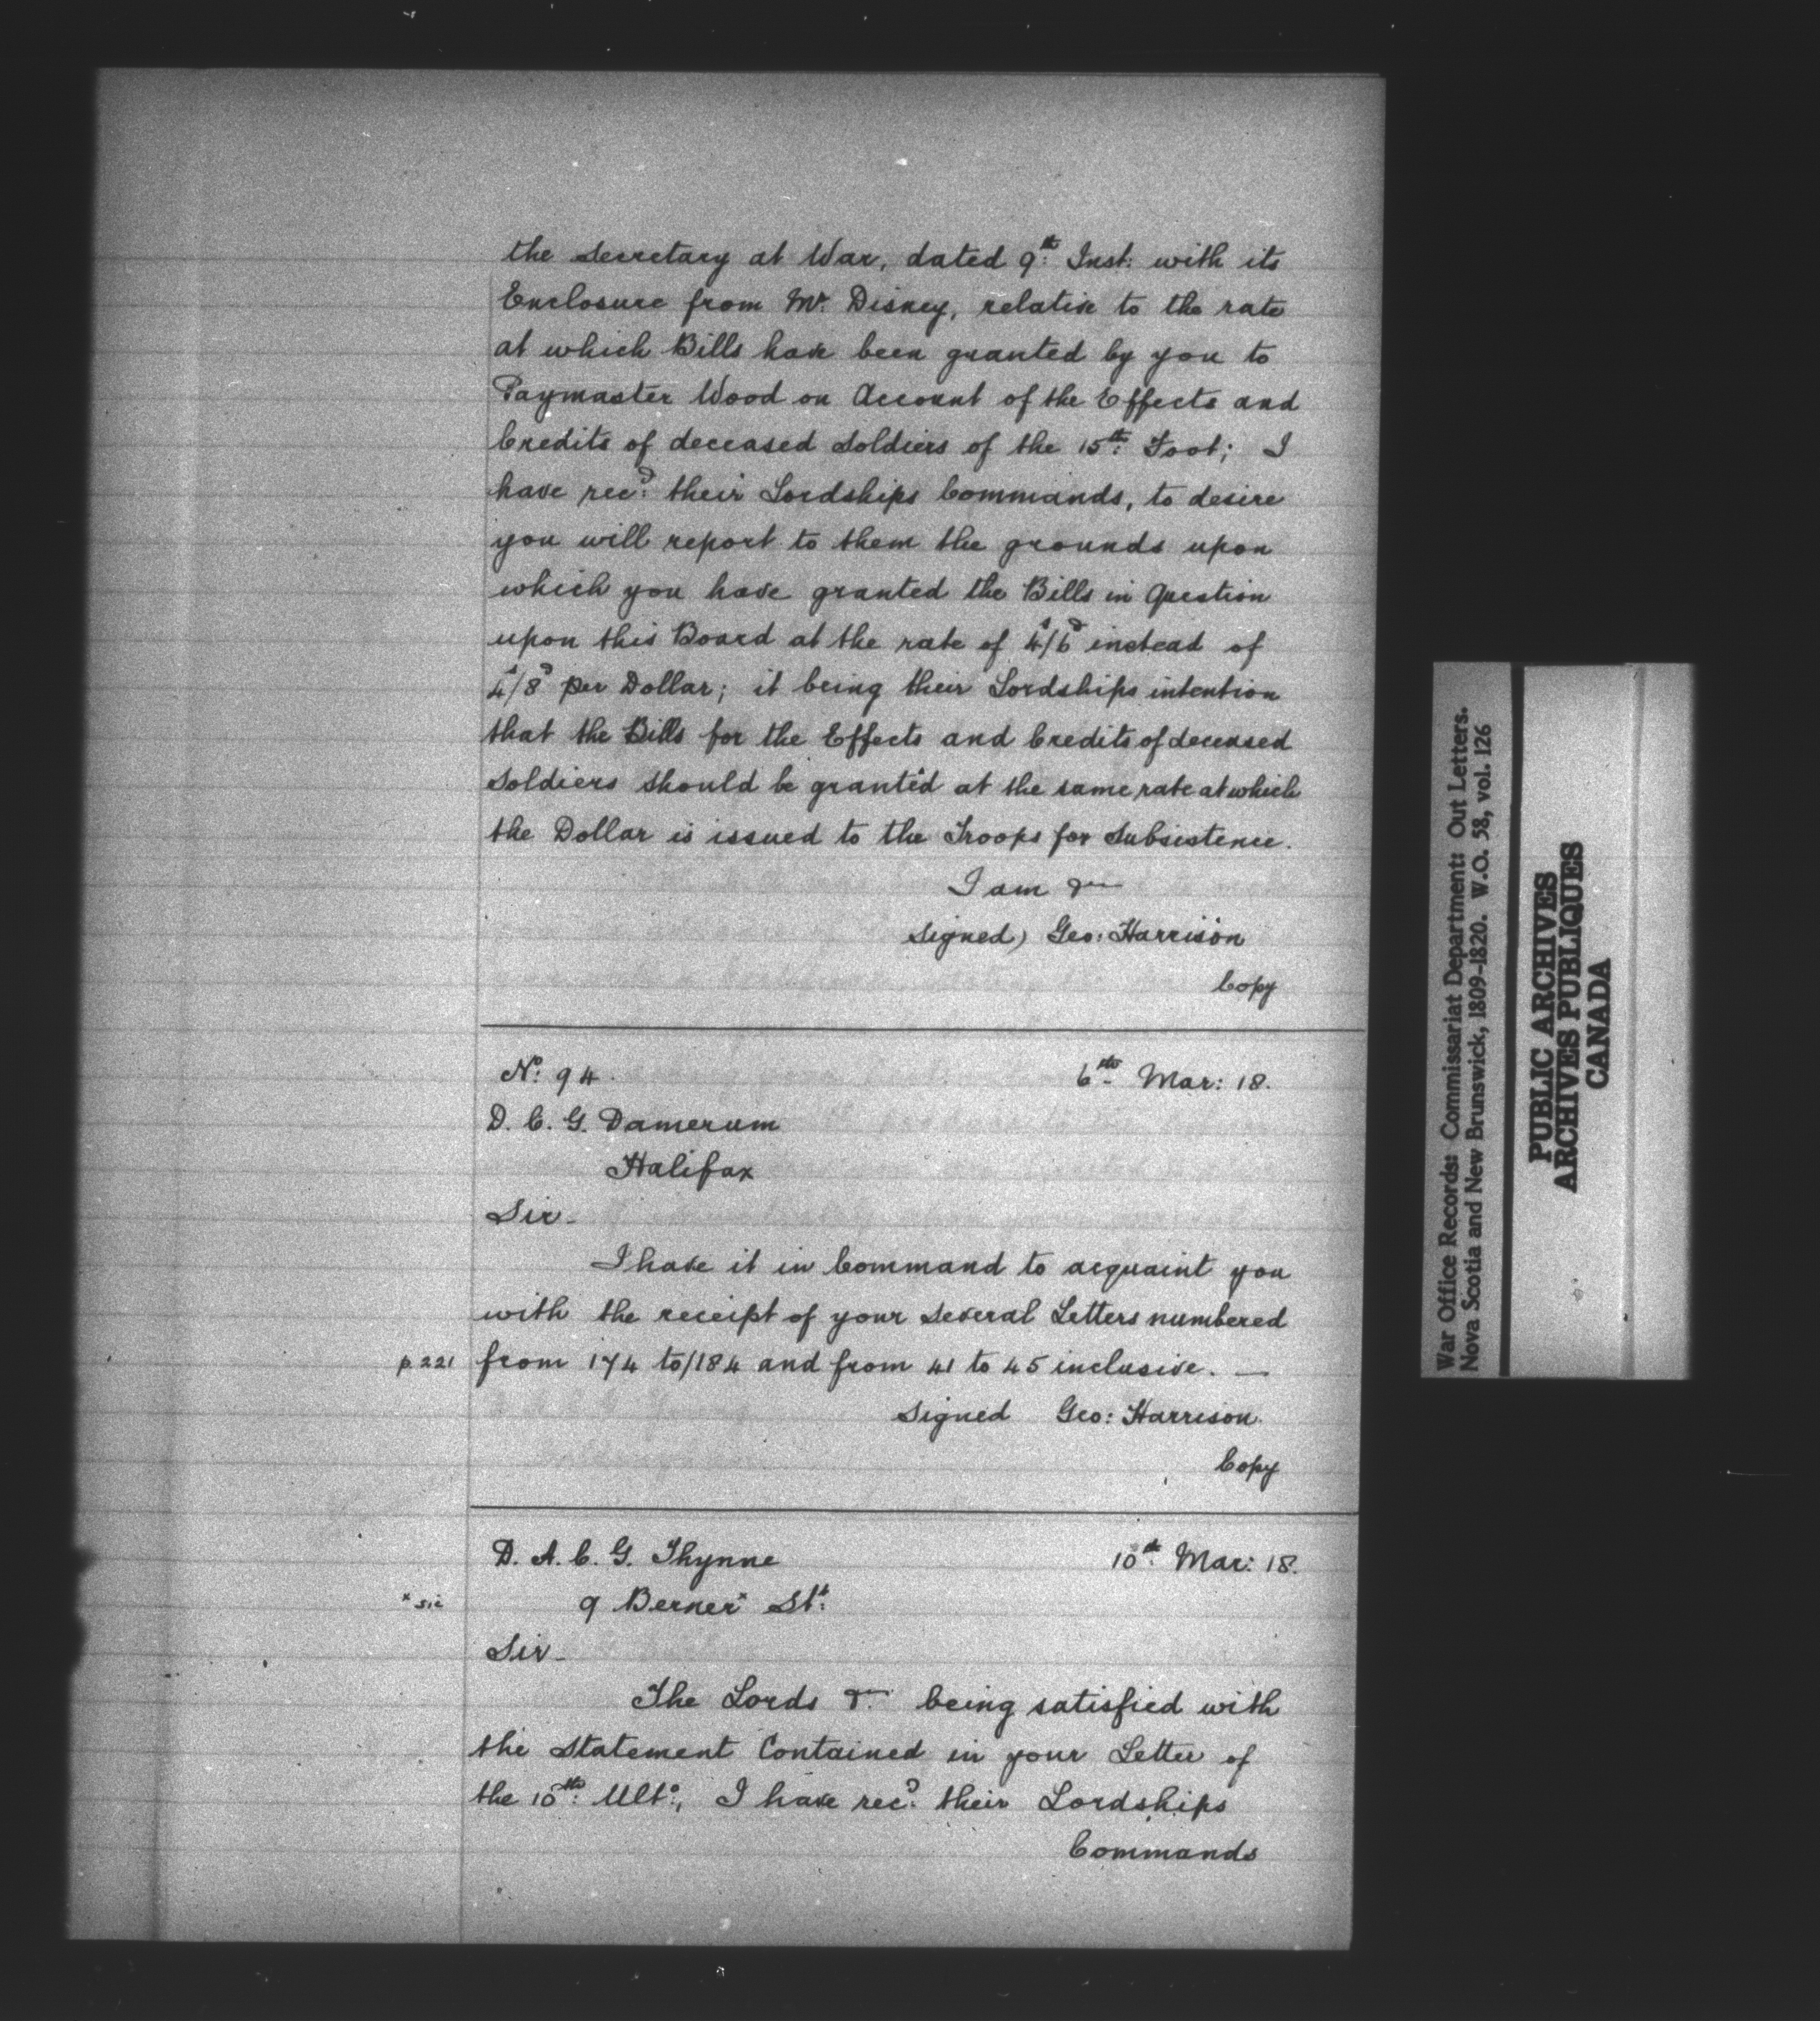 the Secretary at War, dated 9th: Inst: with its
Enclosure from Mr. Disney, relative to the rate
at which Bills have been granted by you to
Paymaster Wood on Account of the Effects and
Credits of deceased Soldiers of the 15th: Foot; I
have recd: their Lordships Commands, to desire
you will report to them the grounds upon
which you have granted the Bills in Question
upon this Board at the rate of 4s/6d instead of
4s/8d per Dollar; it being their Lordships intention
that the Bills for the Effects and Credits of deceased
Soldiers should be grant'd at the same rate at which
the Dollar is issued to the Troops for Subsistence.
I am &c
Signed) Geo: Harrison
Copy
No: 94.
6th Mar: 18.
D. C. G. Damerum
Halifax
Sir-
I have it in Command to acquaint you
with the receipt of your Several Letters numbered
p.221 from 174 to/184 and from 41 to 45 inclusive. —
Signed Geo: Harrison.
Copy
D. A. C. G. Thynne
10th: Mar: 18.
x sic
9 Bernerx St:
Sir-
The Lords &c. being satisfied with
the Statement Contained in your Letter of
the 10th: Ulto:, I have recd: their Lordships
Commands
War Office Records: Commissariat Department: Out Letters.
Nova Scotia and New Brunswick, 1809-1820. W.O. 58, vol. 126
PUBLIC ARCHIVES
ARCHIVES PUBLIQUES
CANADA